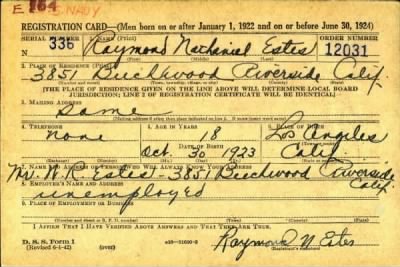 E 164
REGISTRATION CARD—(Men born on or after January 1, 1922 and on or before June 30, 1924)
SERIAL NUMBER 1. NAME (Print) ORDER NUMBER
N 336 Raymond Nathaniel Estes 12031
(First) (Middle) (Last)
2. PLACE OF RESIDENCE (Print)
3851 Beechwood Riverside Calif.
[THE PLACE OF RESIDENCE GIVEN ON THE LINE ABOVE WILL DETERMINE LOCAL BOARD
JURISDICTION; LINE 2 OF REGISTRATION CERTIFICATE WILL BE IDENTICAL]
3. MAILING ADDRESS
Same
4. TELEPHONE 5. AGE IN YEARS 6. PLACE OF BIRTH
none 18 Los Angeles
DATE OF BIRTH
Oct. 30 1923 Calif.
7. NAME AND ADDRESS OF PERSON WHO WILL ALWAYS KNOW YOUR ADDRESS
Mr. W. R. Estes - 3851 Beechwood Riverside Calif.
8. EMPLOYER'S NAME AND ADDRESS
unemployed
9. PLACE OF EMPLOYMENT OR BUSINESS
(Number and street or R. F. D. number) (Town) (County) (State)
I AFFIRM THAT I HAVE VERIFIED ABOVE ANSWERS AND THAT THEY ARE TRUE.
D. S. S. Form 1
(Revised 6-1-42)
Raymond N Estes